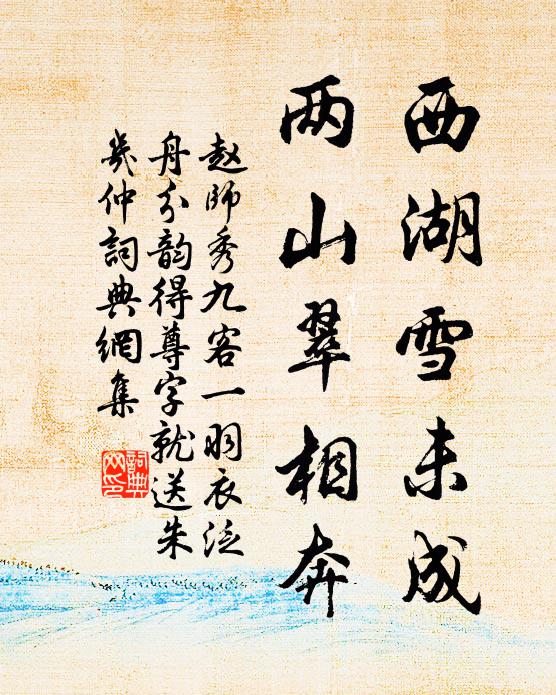 西湖雪未成
两山翠相奔
赵师秀九客一羽衣泛
舟分韵得尊字就送朱
几仲詞典網集
詞典
网印